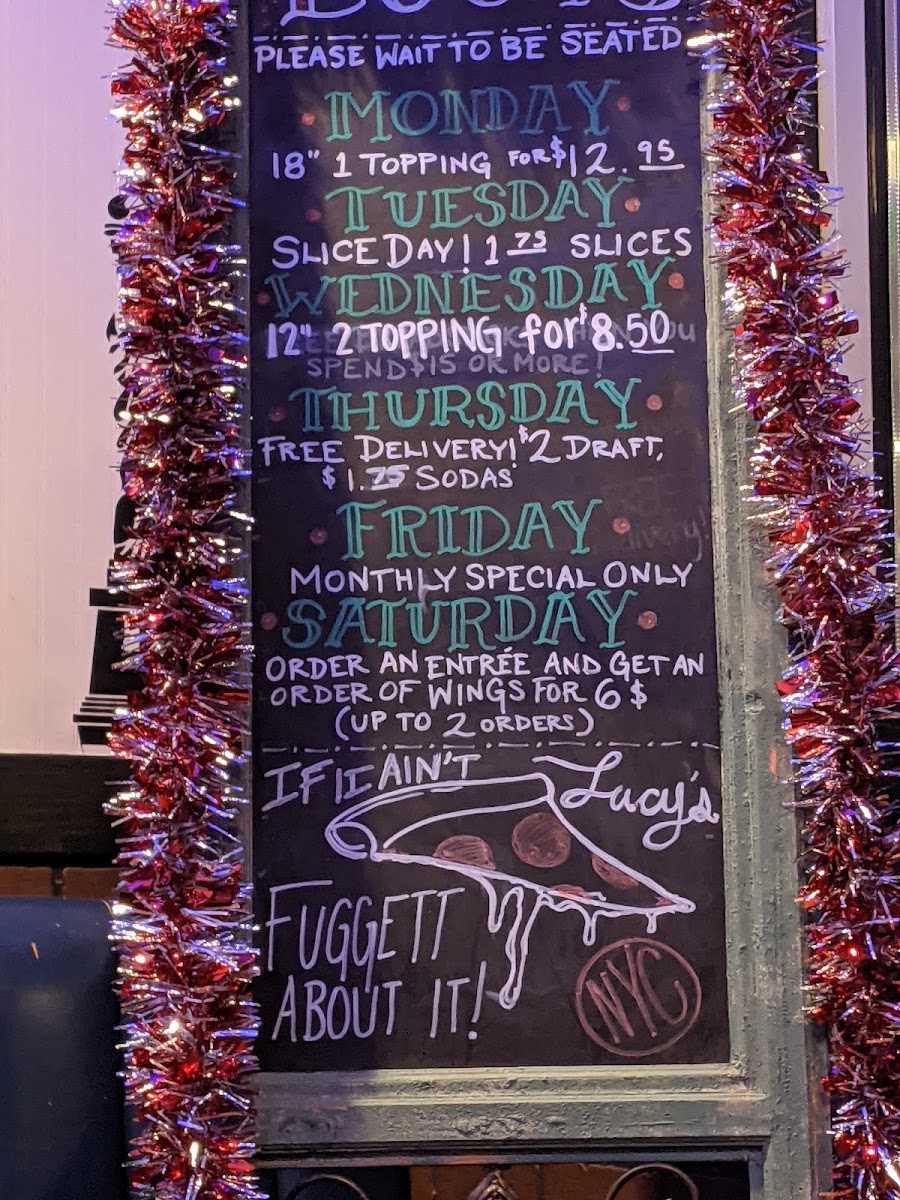 PLEASE WAIT TO BE SEATED
MONDAY
18" 1 TOPPING FOR $12.95
TUESDAY
SLICE DAY! 1 75 SLICES
WEDNESDAY
12" 2 TOPPING for $8.50
SPEND $15 OR MORE!
THURSDAY
FREE DELIVERY! $2 DRAFT,
$1.75 SODAS
FRIDAY
MONTHLY SPECIAL ONLY
SATURDAY
ORDER AN ENTRÉE AND GET AN
ORDER OF WINGS FOR 6$
(UP TO 2 ORDERS)
IF IT AIN'T Lucy's
FUGGETT
ABOUT IT!
NYC